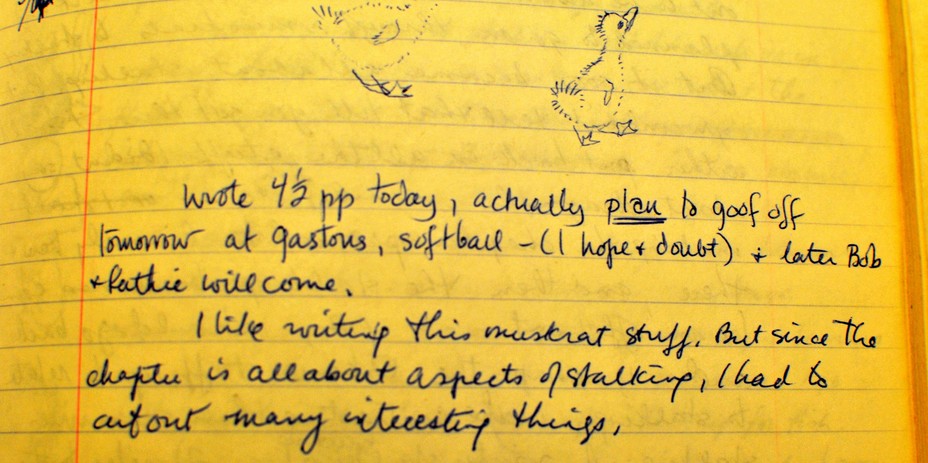 Wrote 4½ pp today, actually plan to goof off
tomorrow at Gastons, softball – (I hope & doubt) & later Bob
& Kathie will come.
I like writing this muskrat stuff. But since the
chapter is all about aspects of stalking, I had to
cut out many interesting things,